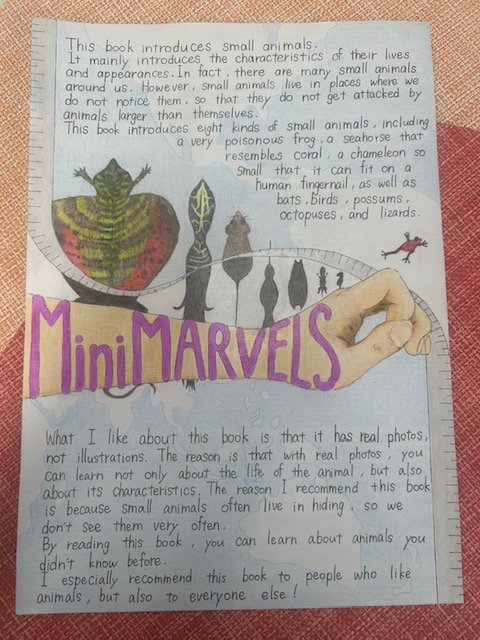 This book introduces small animals.
It mainly introduces the characteristics of their lives
and appearances. In fact, there are many small animals
around us. However, small animals live in places where we
do not notice them, so that they do not get attacked by
animals larger than themselves.
This book introduces eight kinds of small animals, including
a very poisonous frog, a seahorse that
resembles coral, a chameleon so
small that it can fit on a
human fingernail, as well as
bats, birds, possums,
octopuses, and lizards.
Mini MARVELS
What I like about this book is that it has real photos,
not illustrations. The reason is that with real photos, you
can learn not only about the life of the animal, but also
about its characteristics. The reason I recommend this book
is because small animals often live in hiding, so we
don't see them very often.
By reading this book, you can learn about animals you
didn't know before.
I especially recommend this book to people who like
animals, but also to everyone else!